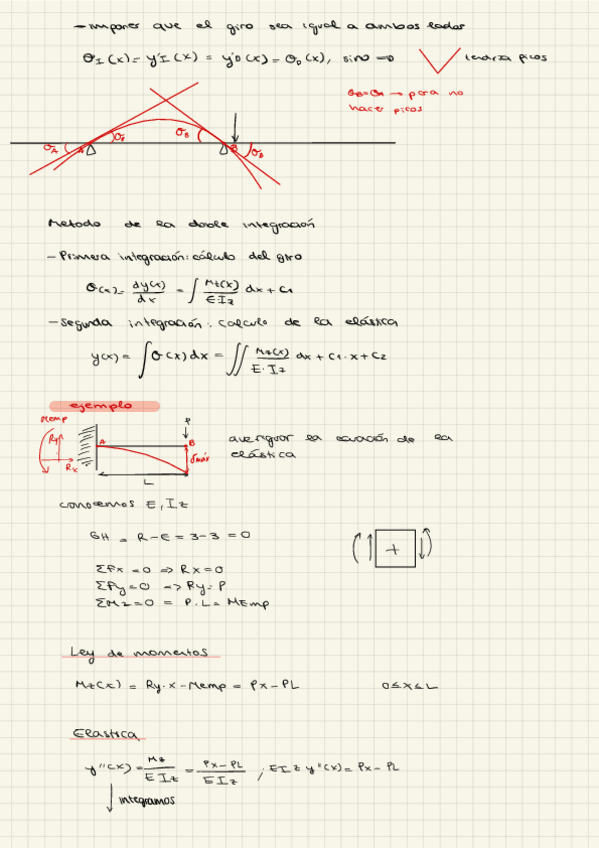 - imponer que el giro sea igual a ambos lados
θI(x) = y'I(x) = y'D(x) = θD(x), sino => tendría picos
θB=θB -> para no
hacer picos
θA A θA θB B θB
Metodo de la doble integración
- Primera integración: cálculo del giro
θ(x) = dy(x)/dx = ∫ Mz(x)/EIz dx + C1
- Segunda integración: calculo de la elástica
y(x) = ∫ θ(x) dx = ∬ Mz(x)/E·Iz dx + C1·x + C2
ejemplo
Memp P
Ry A B averiguar la ecuación de la
Rx δmáx elástica
L
conocemos E, Iz
GH = R-E = 3-3 = 0
+
ΣFx=0 => Rx=0
ΣFy=0 => Ry=P
ΣMz=0 = P.L = MEmp
Ley de momentos
Mz(x) = Ry·x - Memp = Px - PL 0≤x≤L
Elastica
y''(x) = Mz/EIz = Px-PL/EIz ; EIz y''(x) = Px - PL
integramos